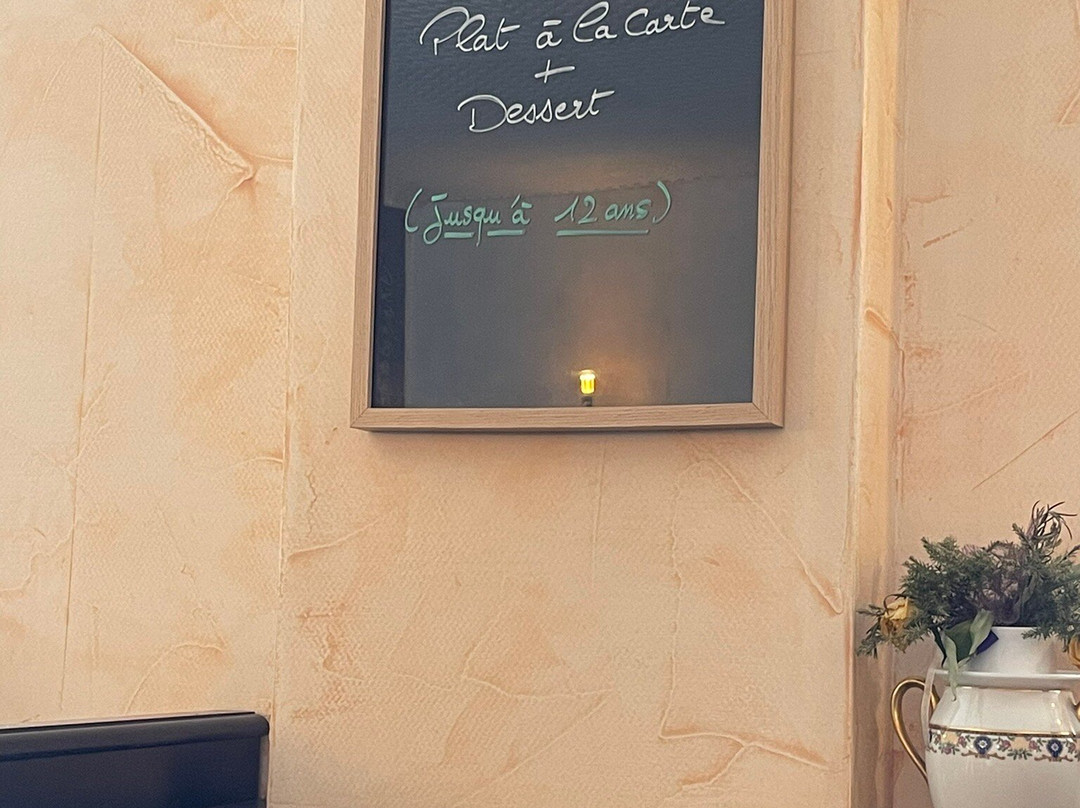 Plat à la Carte
+
Dessert
(Jusqu'à 12 ans)